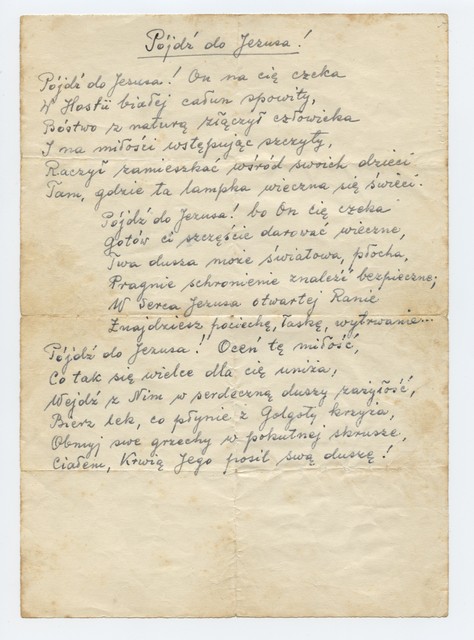 Pójdź do Jezusa!
Pójdź do Jezusa! On na cię czeka
W Hostii białej całun spowity,
Bóstwo z naturą złączył człowieka
I na miłości wstępując szczyty,
Raczył zamieszkać wśród swoich dzieci
Tam, gdzie ta lampka wieczna się świeci.
Pójdź do Jezusa! bo On cię czeka
Gotów ci szczęście darować wieczne,
Twa dusza może światowa, płocha,
Pragnie schronienie znaleźć bezpieczne;
W Serca Jezusa otwartej Ranie
Znajdziesz pociechę, łaskę, wytrwanie...
Pójdź do Jezusa! Oceń tę miłość,
Co tak się wielce dla cię uniża,
Wejdź z Nim w serdeczną duszy zażyłość,
Bierz lek, co płynie z Golgoty krzyża,
Obmyj swe grzechy w pokutnej skrusze,
Ciałem, Krwią Jego posil swą duszę!